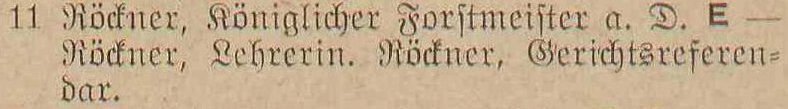 11 Röckner, Königlicher Forstmeister a. D. E —
Röckner, Lehrerin. Röckner, Gerichtsreferen-
dar.